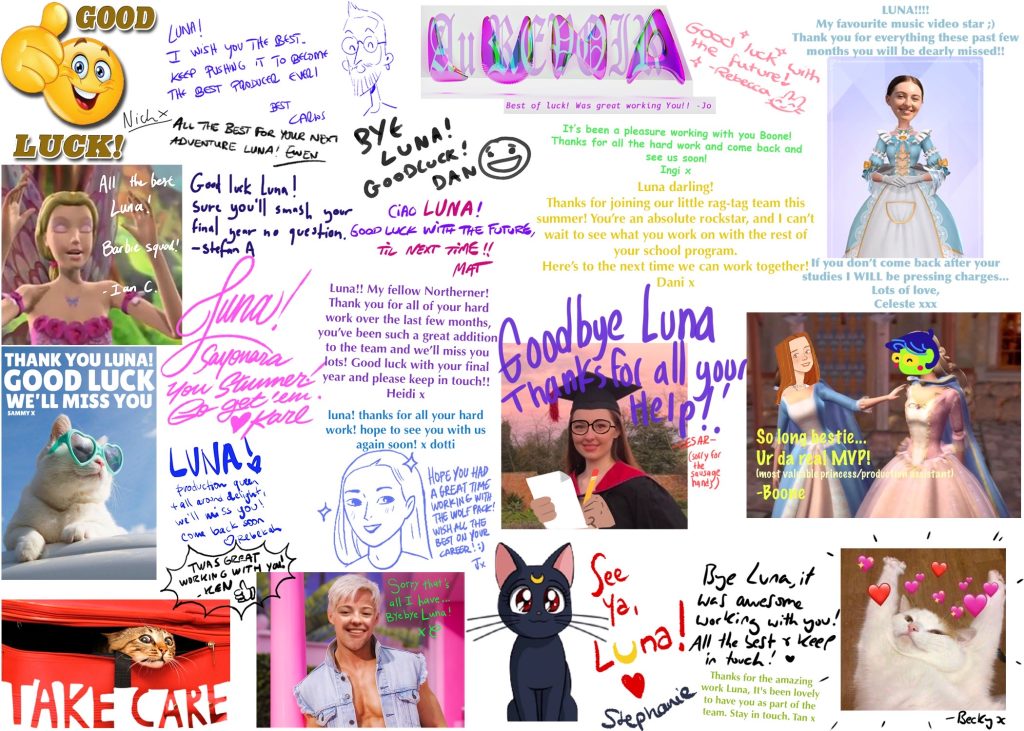 GOOD
LUCK!
Nich x
LUNA!
I WISH YOU THE BEST.
KEEP PUSHING IT TO BECOME
THE BEST PRODUCER EVER!
BEST
CARLOS
ALL THE BEST FOR YOUR NEXT
ADVENTURE LUNA! EWEN
BYE
LUNA!
GOODLUCK!
DAN
Au REVOIR
Best of luck! Was great working You!! -Jo
Good luck with
the future!
- Rebecca
LUNA!!!!
My favourite music video star ;)
Thank you for everything these past few
months you will be dearly missed!!
If you don't come back after your
studies I WILL be pressing charges...
Lots of love,
Celeste xxx
It's been a pleasure working with you Boone!
Thanks for all the hard work and come back and
see us soon!
Ingi x
All the best
Luna!
Barbie squad!
-Ian C.
Good luck Luna!
Sure you'll smash your
final year no question.
-Stefan A
CIAO LUNA!
GOOD LUCK WITH THE FUTURE,
TIL NEXT TIME!!
MAT
Luna darling!
Thanks for joining our little rag-tag team this
summer! You're an absolute rockstar, and I can't
wait to see what you work on with the rest of
your school program.
Here's to the next time we can work together!
Dani x
Luna!
Sayonara
you Stunner!
Go get 'em.
Karl
Luna!! My fellow Northerner!
Thank you for all of your hard
work over the last few months,
you've been such a great addition
to the team and we'll miss you
lots! Good luck with your final
year and please keep in touch!!
Heidi x
Goodbye Luna
Thanks for all your
Help!!
CESAR-
(sorry for
the
sausage
handy)
So long bestie...
Ur da real MVP!
(most valuable princess/production assistant)
-Boone
THANK YOU LUNA!
GOOD LUCK
WE'LL MISS YOU
SAMMY X
luna! thanks for all your hard
work! hope to see you with us
again soon! x dotti
LUNA!
production queen
+ all around delight,
we'll miss you!
come back soon
Rebekah
HOPE YOU HAD
A GREAT TIME
WORKING WITH
THE WOLF PACK!
WISH ALL THE
BEST ON YOUR
CAREER! :)
Jx
TWAS GREAT
WORKING WITH YOU!
KEN
TAKE CARE
Sorry that's
all I have...
Byebye Luna!
x
See
Ya,
Luna!
Stephanie
Bye Luna, it
was awesome
working with you!
All the best & keep
in touch!
Thanks for the amazing
work Luna, It's been lovely
to have you as part of the
team. Stay in touch. Tan x
-Becky x